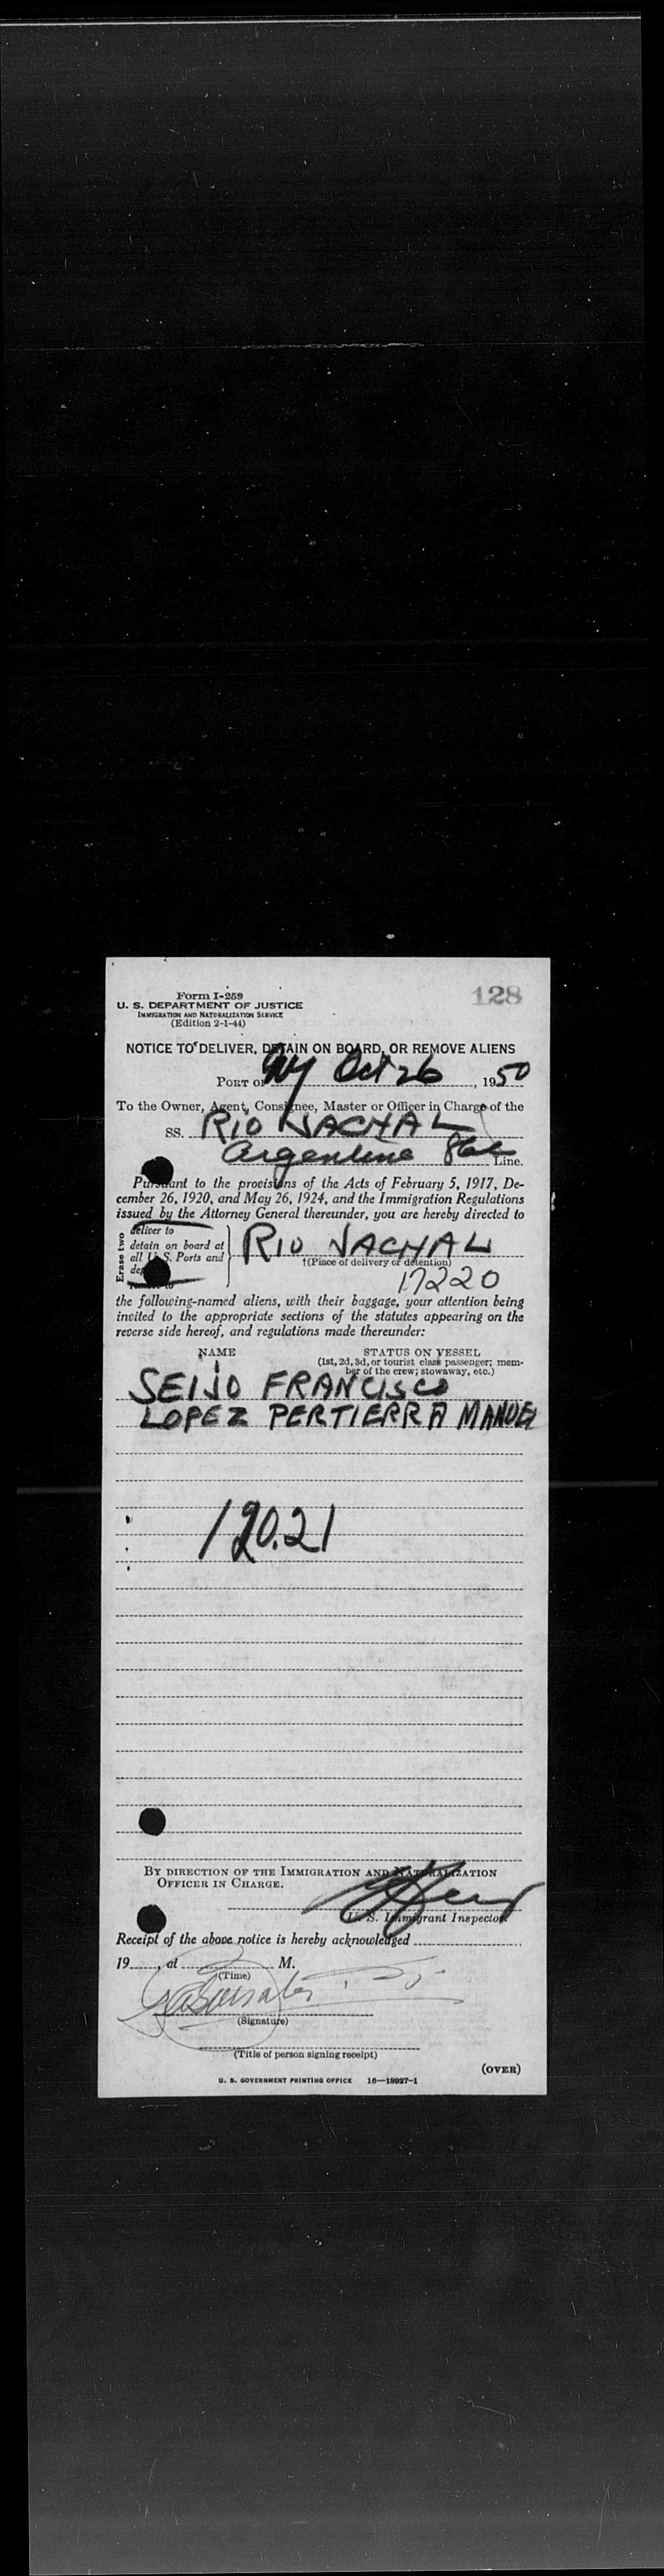 Form I-259
128
U. S. DEPARTMENT OF JUSTICE
IMMIGRATION AND NATURALIZATION SERVICE
(Edition 2-1-44)
NOTICE TO DELIVER, DETAIN ON BOARD, OR REMOVE ALIENS
PORT OF NY Oct 26, 1950
To the Owner, Agent, Consignee, Master or Officer in Charge of the
SS. RIO JACHAL
Argentine State Line.
Pursuant to the provisions of the Acts of February 5, 1917, De-
cember 26, 1920, and May 26, 1924, and the Immigration Regulations
issued by the Attorney General thereunder, you are hereby directed to
Erase two
deliver to
detain on board at
all U. S. Ports and
remove to
RIO JACHAL
†(Place of delivery or detention)
17220
the following-named aliens, with their baggage, your attention being
invited to the appropriate sections of the statutes appearing on the
reverse side hereof, and regulations made thereunder:
NAME
STATUS ON VESSEL
(1st, 2d, 3d, or tourist class passenger; mem-
ber of the crew; stowaway, etc.)
SEIJO FRANCISCO
LOPEZ PERTIERRA MANUEL
120.21
BY DIRECTION OF THE IMMIGRATION AND NATURALIZATION
OFFICER IN CHARGE.
U. S. Immigrant Inspector.
Receipt of the above notice is hereby acknowledged
19, at M.
(Time)
(Signature)
(Title of person signing receipt)
(OVER)
U. S. GOVERNMENT PRINTING OFFICE 16—18927-1